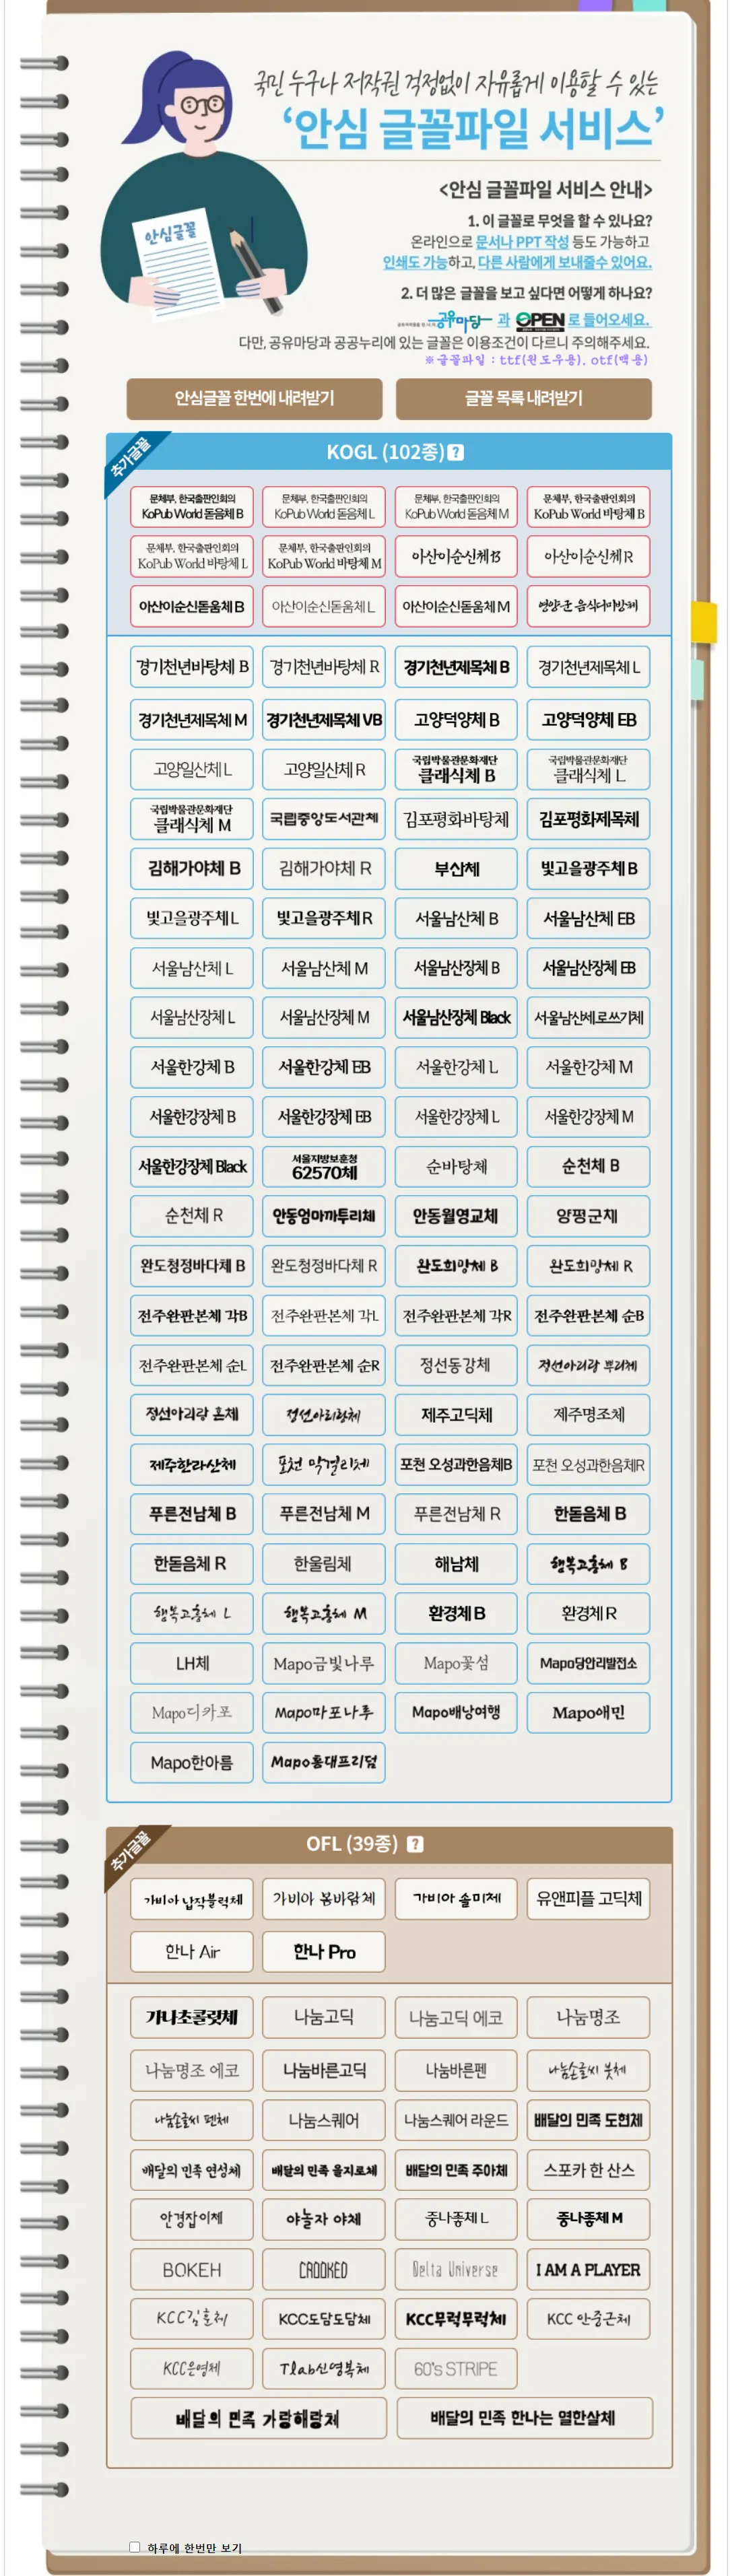 국민 누구나 저작권 걱정없이 자유롭게 이용할 수 있는
‘안심 글꼴파일 서비스’
안심글꼴
<안심 글꼴파일 서비스 안내>
1. 이 글꼴로 무엇을 할 수 있나요?
온라인으로 문서나 PPT 작성 등도 가능하고
인쇄도 가능하고, 다른 사람에게 보내줄수 있어요.
2. 더 많은 글꼴을 보고 싶다면 어떻게 하나요?
공유마당 과 OPEN 로 들어오세요.
다만, 공유마당과 공공누리에 있는 글꼴은 이용조건이 다르니 주의해주세요.
※글꼴파일 : ttf(윈도우용), otf(맥용)
안심글꼴 한번에 내려받기 글꼴 목록 내려받기
추가글꼴
KOGL (102종) ?
문체부, 한국출판인회의 문체부, 한국출판인회의 문체부, 한국출판인회의 문체부, 한국출판인회의
KoPub World 돋음체 B KoPub World 돋음체 L KoPub World 돋음체 M KoPub World 바탕체 B
문체부, 한국출판인회의 문체부, 한국출판인회의
KoPub World 바탕체 L KoPub World 바탕체 M 아산이순신체B 아산이순신체R
아산이순신돋움체 B 아산이순신돋움체 L 아산이순신돋움체 M 영양군 음식디미방체
경기천년바탕체 B 경기천년바탕체 R 경기천년제목체 B 경기천년제목체 L
경기천년제목체 M 경기천년제목체 VB 고양덕양체 B 고양덕양체 EB
고양일산체 L 고양일산체 R 국립박물관문화재단 클래식체 B 국립박물관문화재단 클래식체 L
국립박물관문화재단 클래식체 M 국립중앙도서관체 김포평화바탕체 김포평화제목체
김해가야체 B 김해가야체 R 부산체 빛고을광주체 B
빛고을광주체 L 빛고을광주체 R 서울남산체 B 서울남산체 EB
서울남산체 L 서울남산체 M 서울남산장체 B 서울남산장체 EB
서울남산장체 L 서울남산장체 M 서울남산장체 Black 서울남산체세로쓰기체
서울한강체 B 서울한강체 EB 서울한강체 L 서울한강체 M
서울한강장체 B 서울한강장체 EB 서울한강장체 L 서울한강장체 M
서울한강장체 Black 서울지방보훈청 62570체 순바탕체 순천체 B
순천체 R 안동엄마까투리체 안동월영교체 양평군체
완도청정바다체 B 완도청정바다체 R 완도희망체 B 완도희망체 R
전주완판본체 각B 전주완판본체 각L 전주완판본체 각R 전주완판본체 순B
전주완판본체 순L 전주완판본체 순R 정선동강체 정선아리랑 뿌리체
정선아리랑 혼체 정선아리랑체 제주고딕체 제주명조체
제주한라산체 포천 막걸리체 포천 오성과한음체B 포천 오성과한음체R
푸른전남체 B 푸른전남체 M 푸른전남체 R 한돋음체 B
한돋음체 R 한울림체 해남체 행복고흥체 B
행복고흥체 L 행복고흥체 M 환경체 B 환경체 R
LH체 Mapo금빛나루 Mapo꽃섬 Mapo당인리발전소
Mapo디카포 Mapo마포나루 Mapo배낭여행 Mapo애민
Mapo한아름 Mapo홍대프리덤
추가글꼴
OFL (39종) ?
가비아 납작블럭체 가비아 봄바람체 가비아 솔미체 유앤피플 고딕체
한나 Air 한나 Pro
가나초콜릿체 나눔고딕 나눔고딕 에코 나눔명조
나눔명조 에코 나눔바른고딕 나눔바른펜 나눔손글씨 붓체
나눔손글씨 펜체 나눔스퀘어 나눔스퀘어 라운드 배달의 민족 도현체
배달의 민족 연성체 배달의 민족 을지로체 배달의 민족 주아체 스포카 한 산스
안경잡이체 야놀자 야체 중나좋체 L 중나좋체 M
BOKEH CROOKED Delta Universe I AM A PLAYER
KCC김훈체 KCC도담도담체 KCC무럭무럭체 KCC 안중근체
KCC은영체 Tlab신영복체 60's STRIPE
배달의 민족 기랑해랑체 배달의 민족 한나는 열한살체
하루에 한번만 보기